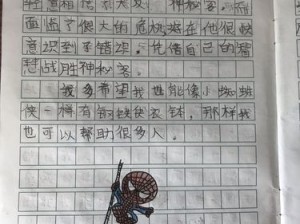 神秘客。然
面临了很大的危机，好在他很快
意识到了错误。他借自己的
战胜神秘客。
我多希望我也能像小蜘蛛
侠一样有钢铁侠衣钵，那样我
也可以帮助很多人。